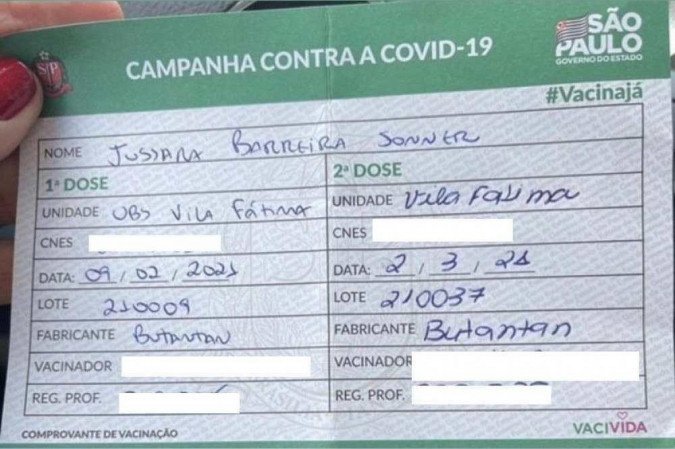 SP
CAMPANHA CONTRA A COVID-19
SÃO
PAULO
GOVERNO DO ESTADO
#Vacinajá
NOME JUSSARA BARREIRA SONNER
1ª DOSE
UNIDADE UBS Vila Fátima
CNES
DATA: 09 / 02 / 2021
LOTE 210009
FABRICANTE Butantan
VACINADOR
REG. PROF.
2ª DOSE
UNIDADE Vila Fatima
CNES
DATA: 2 / 3 / 21
LOTE 210037
FABRICANTE Butantan
VACINADOR
REG. PROF.
COMPROVANTE DE VACINAÇÃO
VACIVIDA